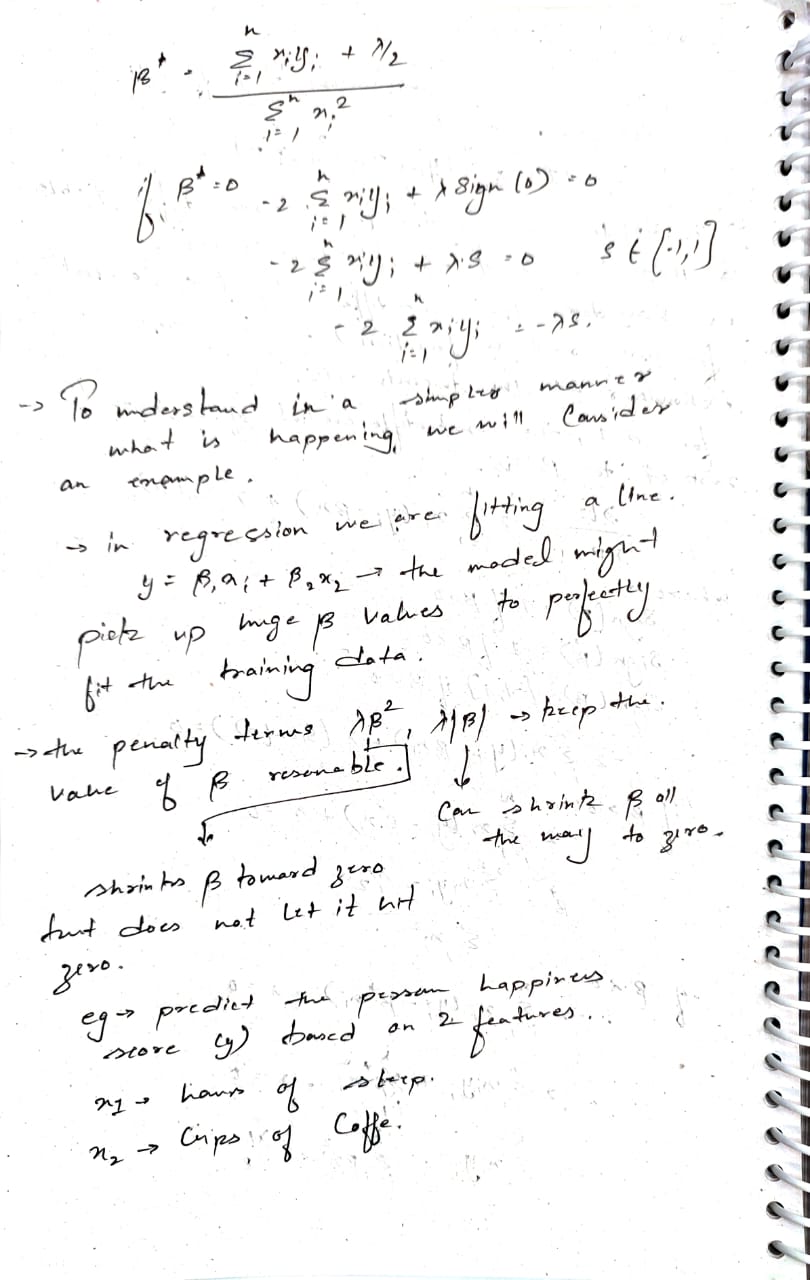 β* = (Σ_{i=1}^{n} x_i y_i + λ/2) / (Σ_{i=1}^{n} x_i^2)
if β* = 0   -2 Σ_{i=1}^{n} x_i y_i + λ Sign (0) = 0
-2 Σ_{i=1}^{n} x_i y_i + λ.S = 0   s ∈ [-1,1]
-2 Σ_{i=1}^{n} x_i y_i = -λs.
-> To understand in a simpler manner
what is happening, we will Consider
an example.
-> in regression we are fitting a line.
y = β_1 x_1 + β_2 x_2 -> the model might
pick up huge β values to perfectly
fit the training data.
-> the penalty terms λβ^2, λ|β| -> keep the
value of β resonable.
Can shrink β all
the way to zero.
shrinks β toward zero
but does not let it hit
zero.
eg -> predict the person happiness
score (y) based on 2 features..
x_1 -> hours of sleep.
x_2 -> Cups of Coffe.